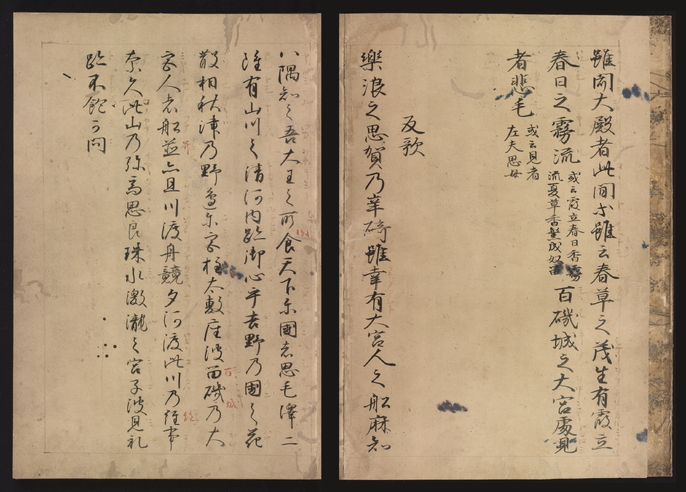 雖聞大殿者此間等雖云春草之茂生有霞立
春日之霧流 或云霞立春日香霧流夏草香繁成奴留 百礒城之大宮處見
者悲毛 或云見者左夫思母
反歌
樂浪之思賀乃辛碕雖幸有大宮人之船麻知
八隅知之吾大王之所食天下尓國者思毛澤二
雖有山川之清河内跡御心乎吉野乃國之花
散相秋津乃野邊尓宮柱太敷座波百礒乃大
宮人者船並弖旦川渡舟競夕河渡此川乃絶事
奈久此山乃弥高思良珠水激瀧之宮子波見礼
跡不飽可問